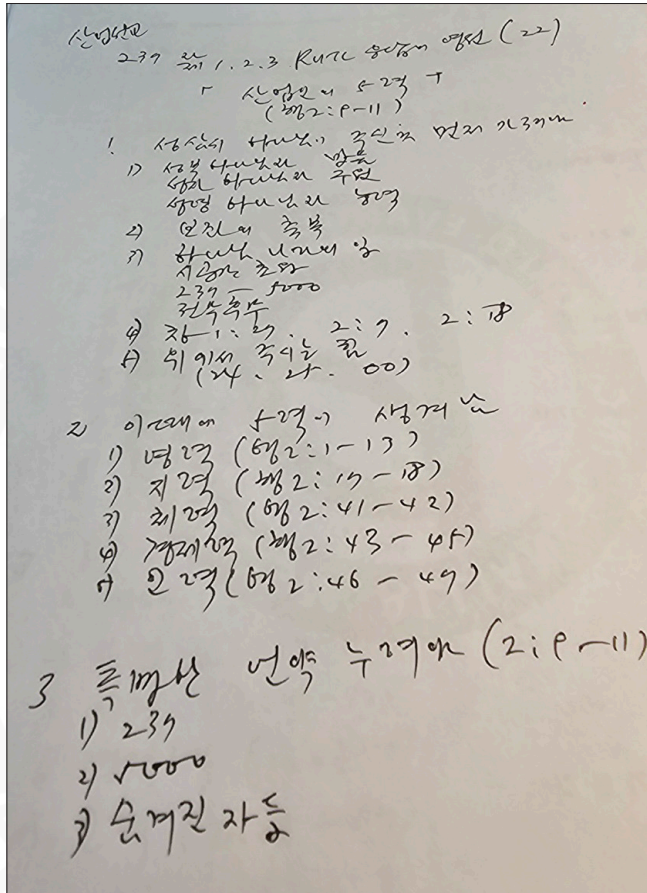 산업선교
237 과제 1.2.3 RUTC 응답의 여정 (22)
「 산업인의 5력 」
(행2:9-11)
1. 성삼위 하나님이 주신 것 먼저 가져라
1) 성부 하나님의 말씀
성자 하나님의 구원
성령 하나님의 능력
2) 보좌의 축복
3) 하나님 나라의 일
시공간 초월
237 - 5000
전무후무
4) 창1:27. 2:7. 2:18
5) 위에서 주시는 힘
(24. 25. 00)
2 이때에 5력이 생겨남
1) 영력 (행2:1-13)
2) 지력 (행2:17-18)
3) 체력 (행2:41-42)
4) 경제력 (행2:43-45)
5) 인력 (행2:46-47)
3 특별한 언약 누려라 (2:9-11)
1) 237
2) 5000
3) 숨겨진 자들